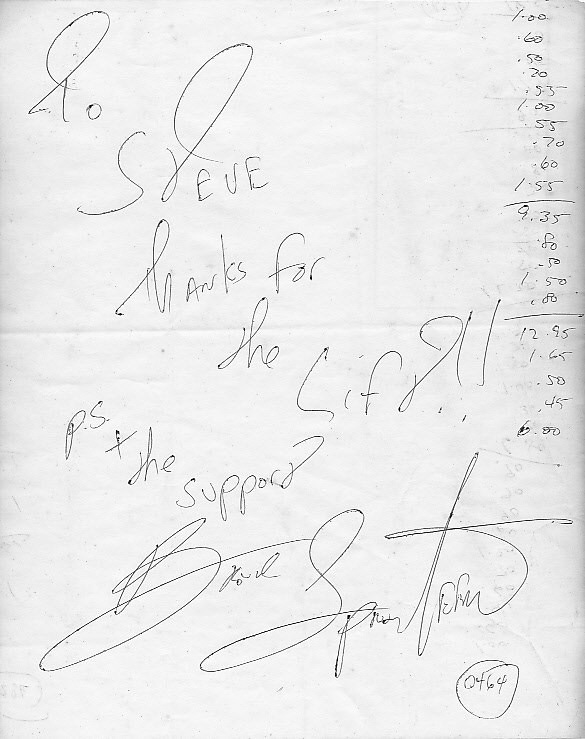 To
STEVE
thanks for
the
Gift!!
p.s.
+ the
support
Bruce Springsteen
0464
1.00
.60
.50
.20
.55
1.00
.55
.70
.60
1.55
9.35
.80
.50
1.50
.80
12.95
1.65
.50
.45